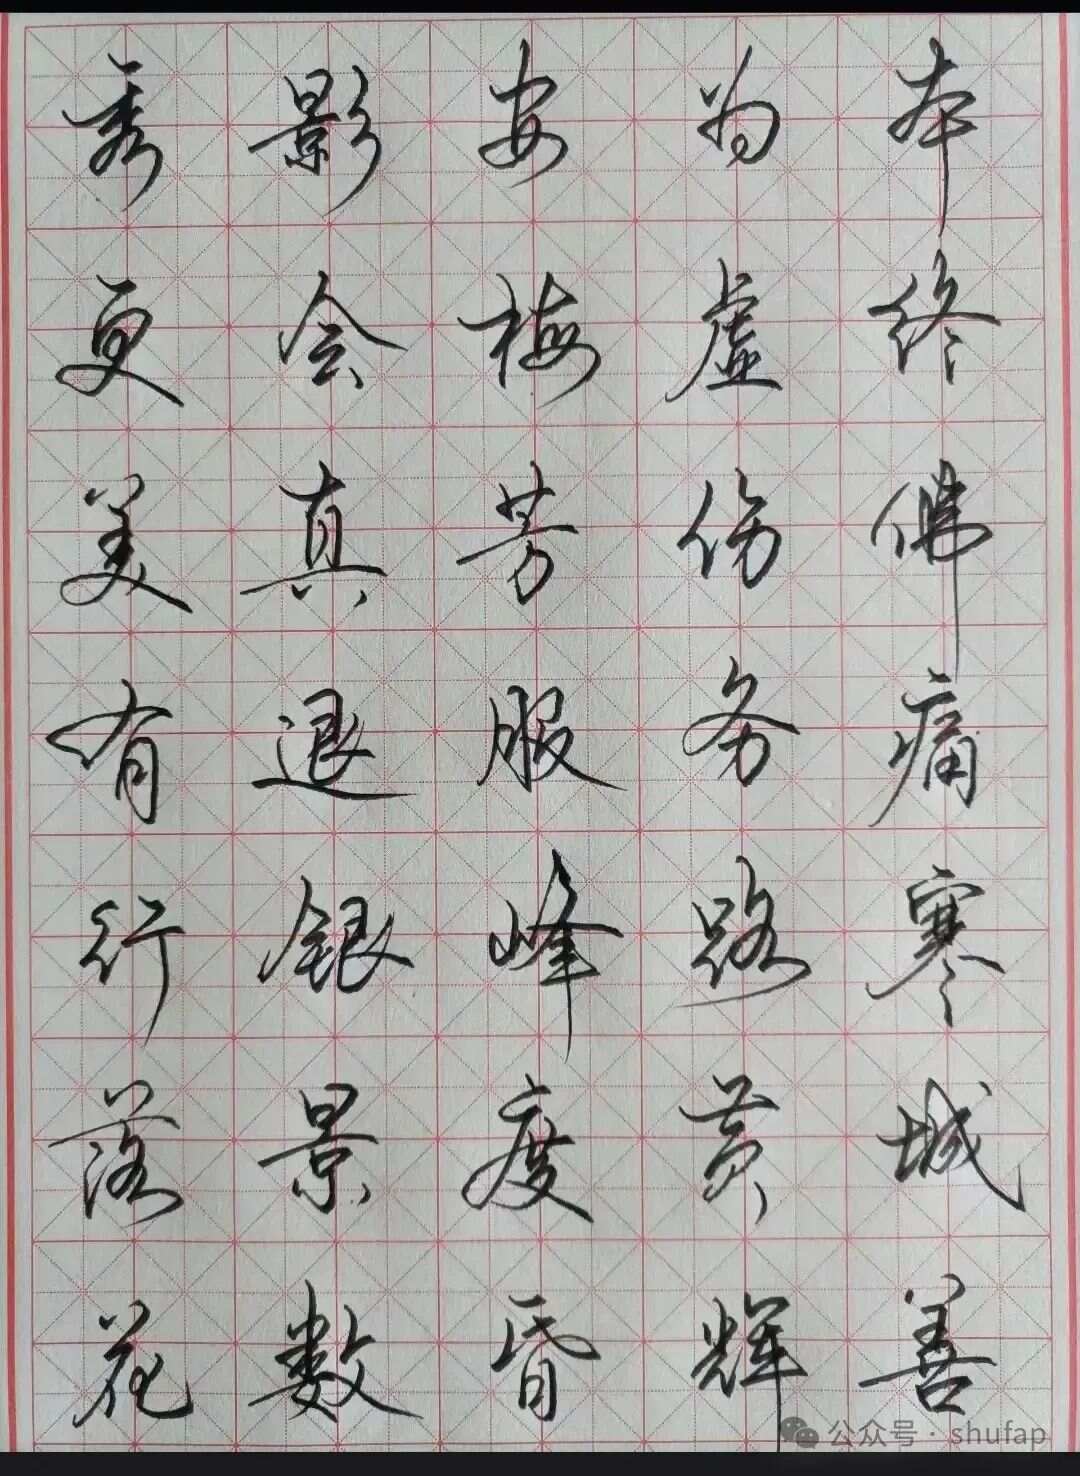 秀影安为本
更会梅虚终
美真芳伤佛
有退服务痛
行银峰路寒
落景度黄城
花数昏辉善
公众号·shufap